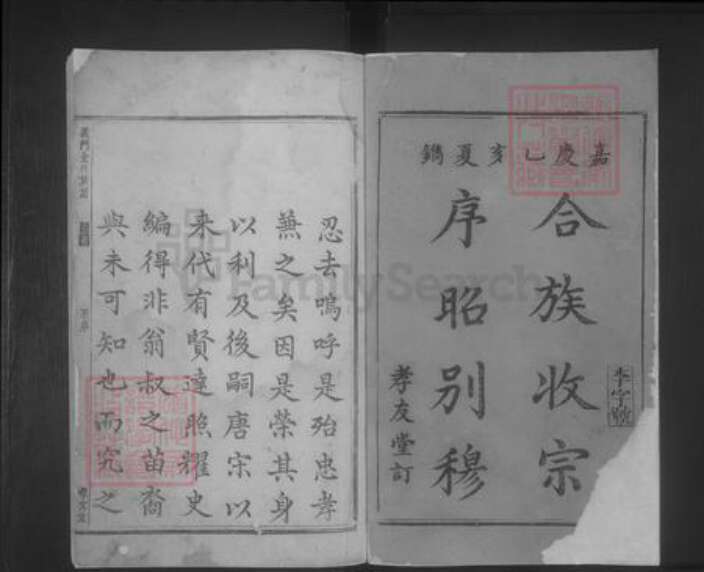 嘉慶乙亥夏鐫
合族收宗
序昭別穆
孝友堂訂
李字號
忍去嗚呼是殆忠孝
兼之矣因是榮其身
以利及後嗣唐宋以
来代有賢達照耀史
編得非翁叔之苗裔
與未可知也而究之
孝友堂
FamilySearch